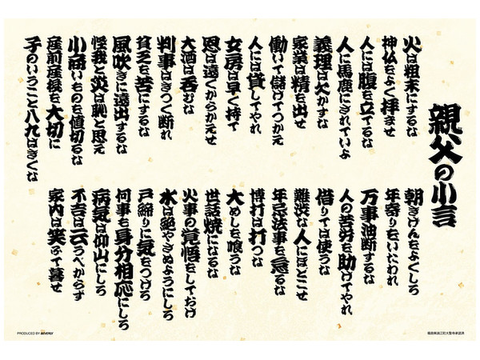 親父の小言
火は粗末にするな
神仏をよく拝ませ
人には腹を立てるな
人に馬鹿にされていよ
義理は欠かすな
家業は精を出せ
働いて儲けてつかえ
人には貸してやれ
女房は早く持て
恩は遠くからかえせ
大酒は呑むな
判事はきつく断れ
貧乏を苦にするな
風吹きに遠出するな
怪我と災は恥と思え
小商いものを値切るな
産前産後を大切に
子のいうこと八九はきくな
朝きげんをよくしろ
年寄りをいたわれ
万事油断するな
人の苦労を助けてやれ
借りては使うな
難渋な人にほどこせ
年忌法事を怠るな
博打は打つな
大めしを喰うな
世話焼になるな
火事の覚悟をしておけ
水は絶やさぬようにしろ
戸締りに気をつけろ
何事も身分相応にしろ
病気は仰山にしろ
不吉は云うべからず
家内は笑ふて暮せ
PRODUCED BY BEVERLY